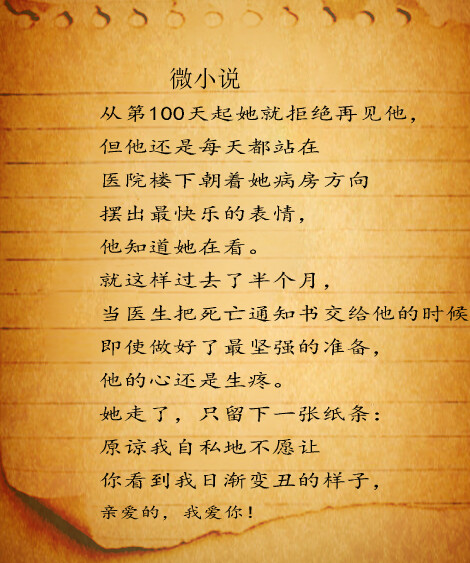 微小说
从第100天起她就拒绝再见他，
但他还是每天都站在
医院楼下朝着她病房方向
摆出最快乐的表情，
他知道她在看。
就这样过去了半个月，
当医生把死亡通知书交给他的时候
即使做好了最坚强的准备，
他的心还是生疼。
她走了，只留下一张纸条：
原谅我自私地不愿让
你看到我日渐变丑的样子，
亲爱的，我爱你！